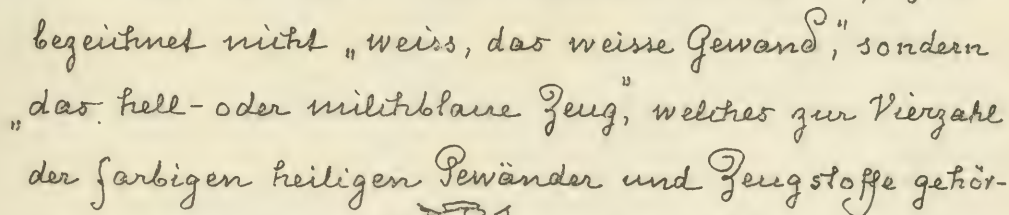 bezeichnet nicht „weiss, das weisse Gewand“, sondern
„das hell- oder milchblaue Zeug“, welches zur Vierzahl
der farbigen heiligen Gewänder und Zeugstoffe gehör-